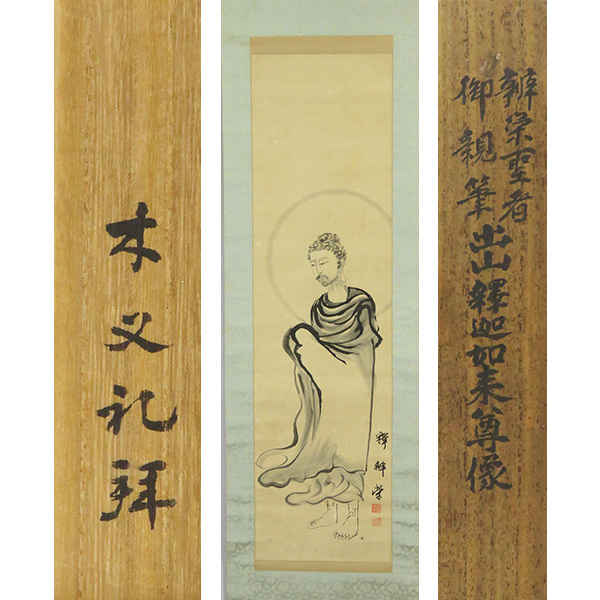 辨栄聖者
御親筆出山釋迦如来尊像
釋辨栄
木叉礼拜